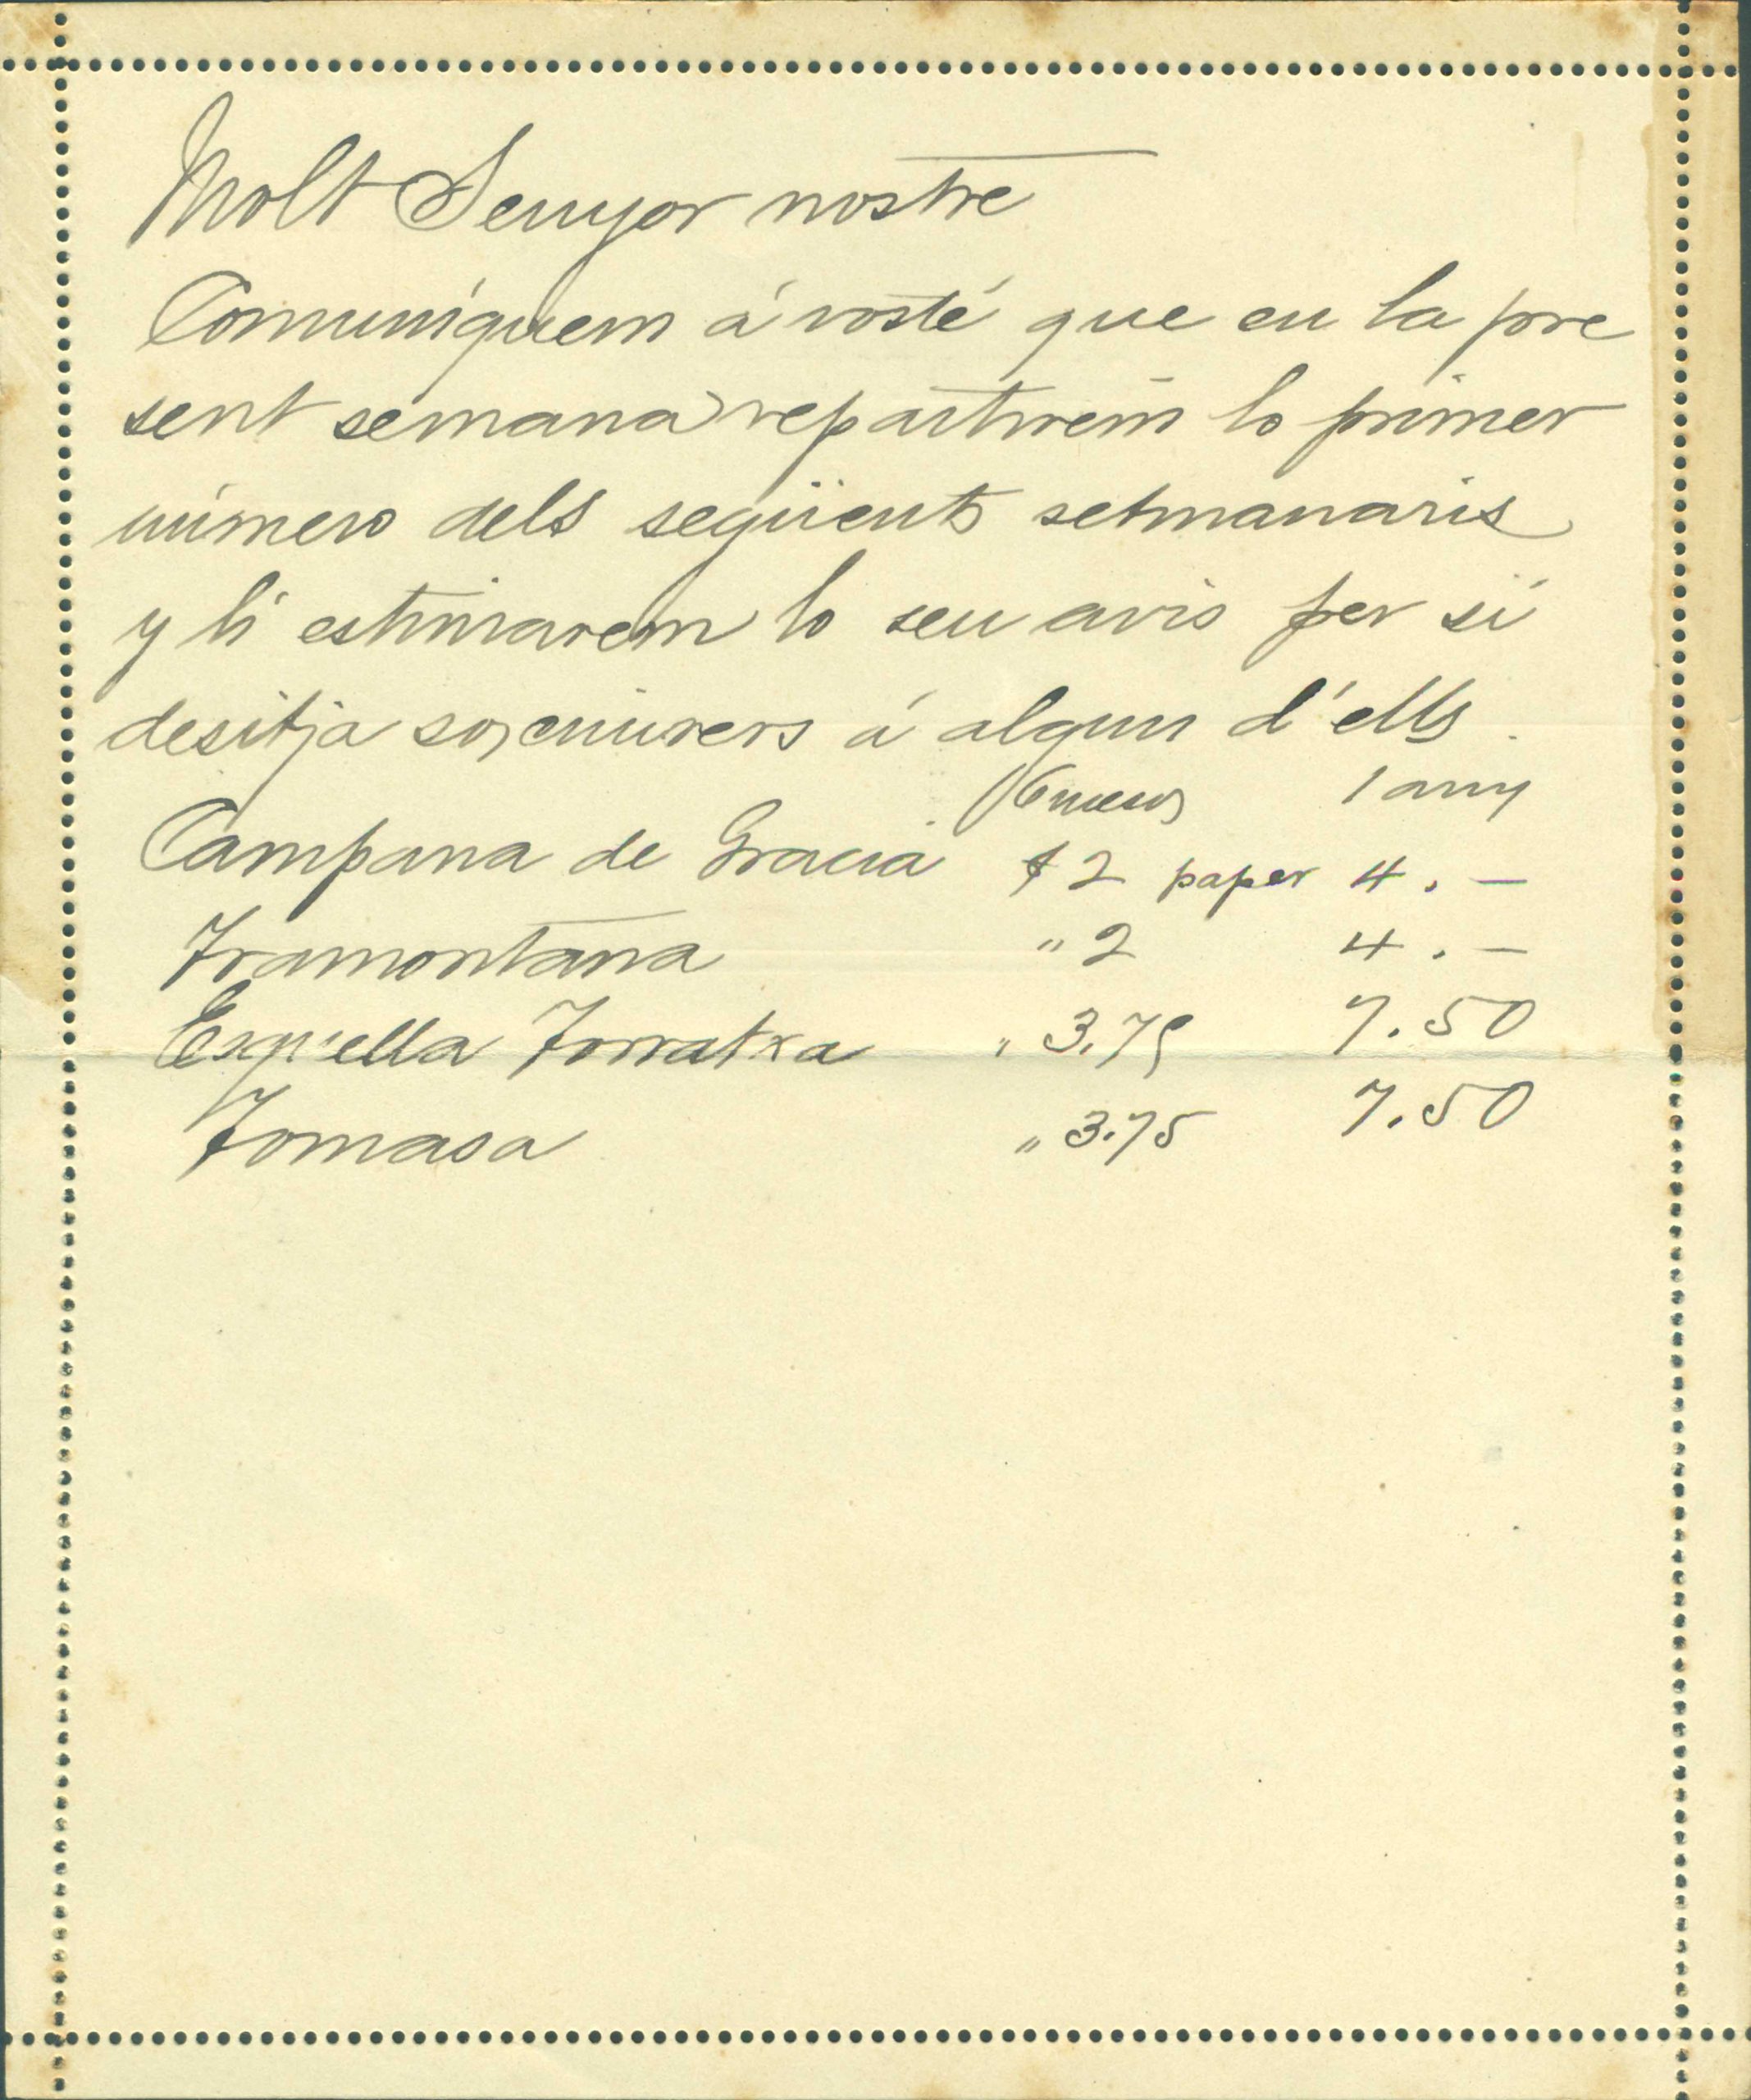 Molt Senyor nostre
Comuniquem á vosté que en la pre
sent semana repartirem lo primer
número dels següents setmanaris
y li estimarem lo seu avis per si
desitja á algun d'ells.
6 mesos 1 any
Campana de Gracia $ 2 paper 4.—
Tramontana " 2 4.—
Esquella Torratxa " 3.75 7.50
Tomasa " 3.75 7.50